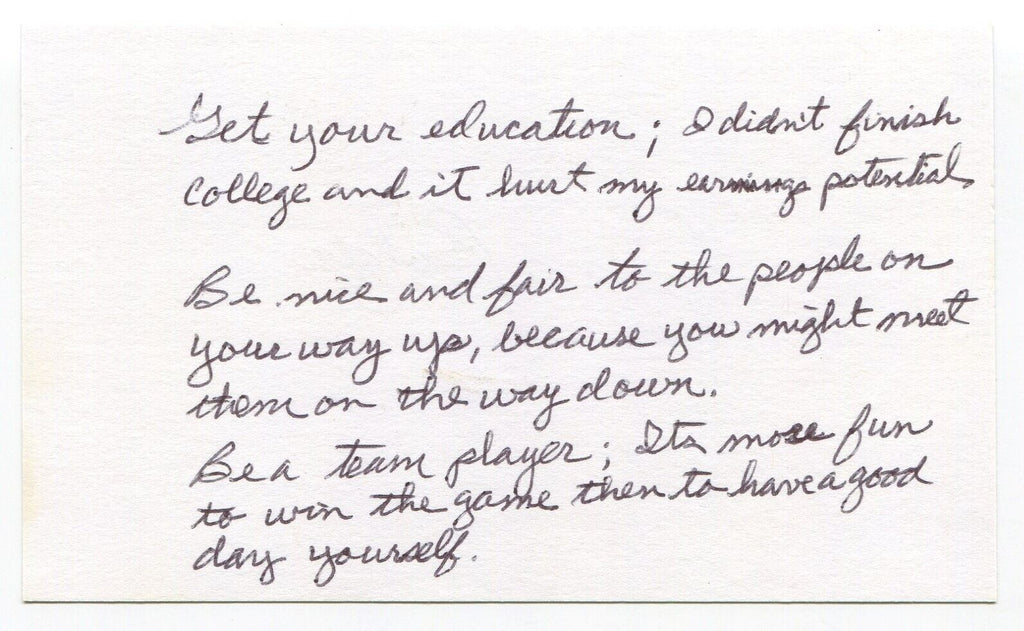 Get your education; I didn't finish
college and it hurt my earnings potential.
Be nice and fair to the people on
your way up, because you might meet
them on the way down.
Be a team player; Its more fun
to win the game then to have a good
day yourself.